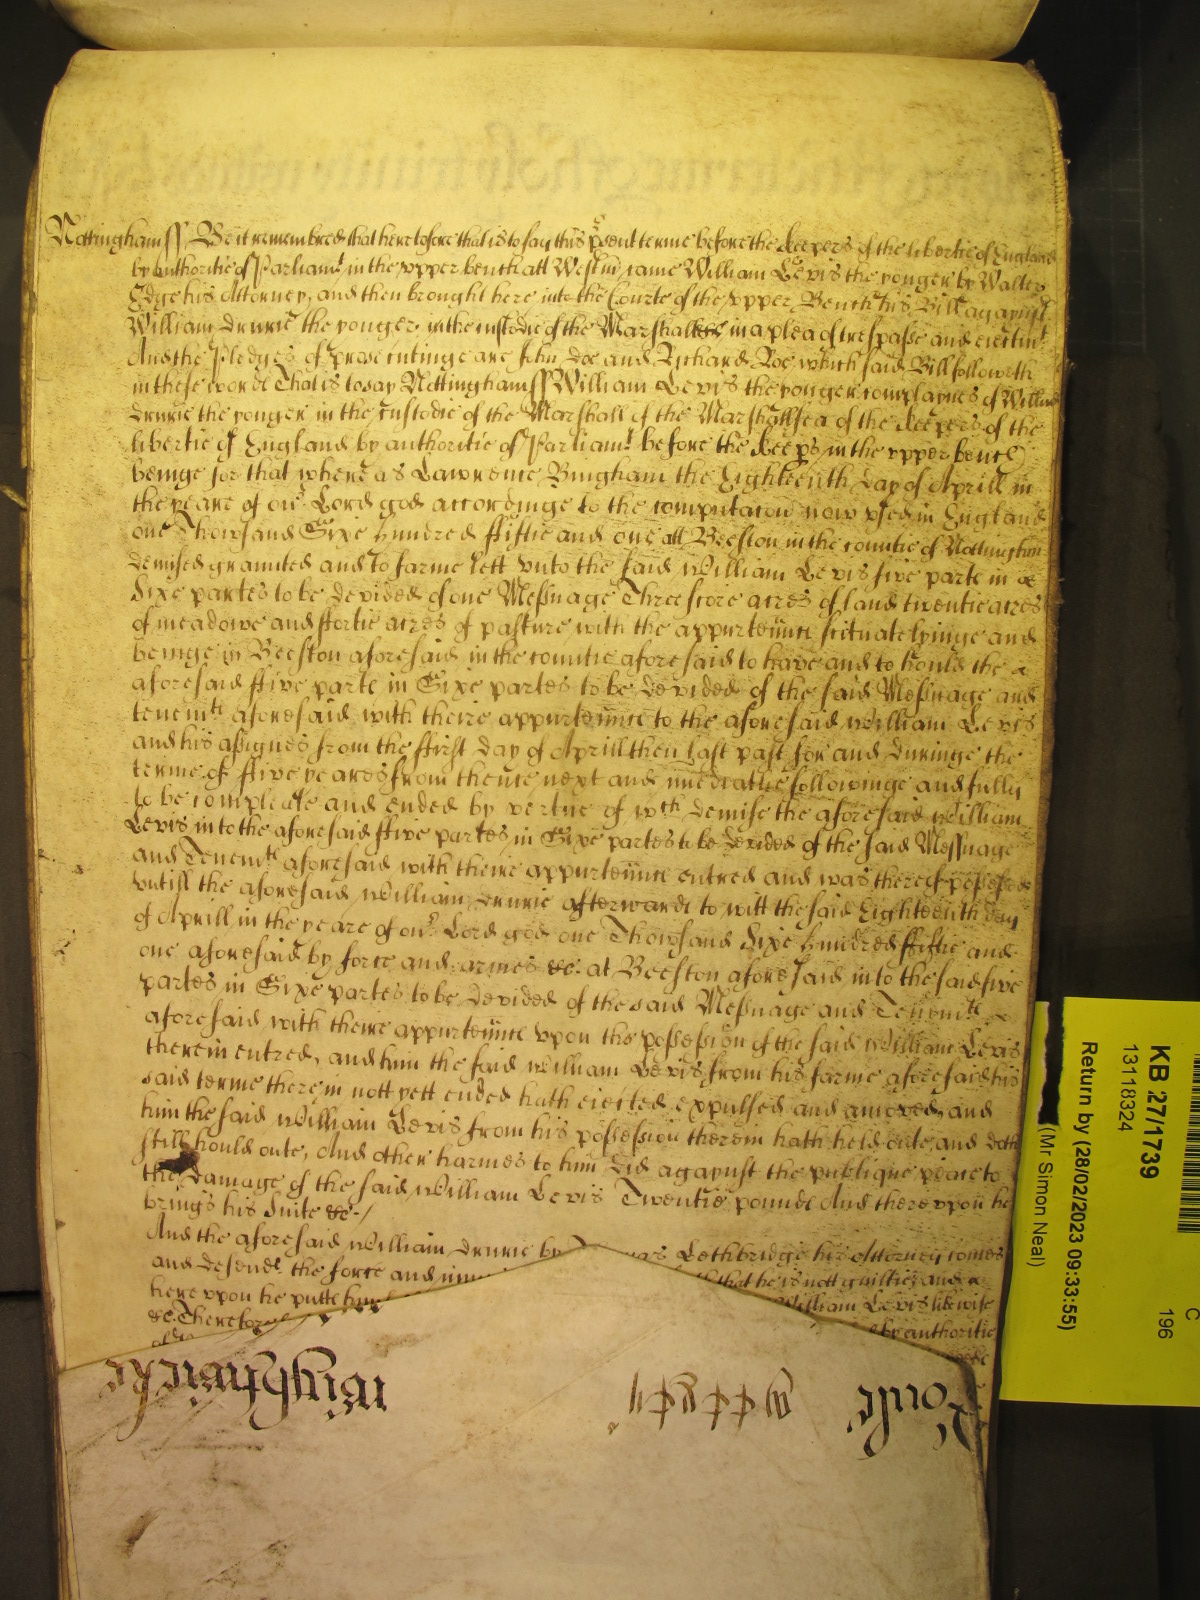 Nottingham ss Be it remembred that heretofore that is to say this p'sent terme before the keepers of the libertie of England
by authoritie of Parliamt in the vpper bench att Westm' came William Levis the yonger by Walter
Edge his Attorney, and then brought here into the Courte of the vpper Bench his Bill agaynst
William Drurie the yonger in the custodie of the Marshall &c in a plea of trespasse and eiectmt
And the Pledges of prosecutinge are John Doe and Richard Roe, which said Bill followeth
in these wordes That is to say Nottingham ss William Levis the yonger complaynes of William
Drurie the yonger in the custodie of the Marshall of the Marshallsea of the keepers of the
libertie of England by authoritie of Parliamt before the keep's in the vpper bench
beinge for that whereas Lawrence Bingham the Eighteenth day of Aprill in
the yeare of our Lord god accordinge to the computacon now vsed in England
one Thowsand Sixe hundred ffiftie and one att Beeston in the countie of Nottingham
demised graunted and to farme lett vnto the said William Levis five partes in
Sixe partes to be devided of one Messuage Threescore acres of land twentie acres
of meadowe and ffortie acres of pasture with the appurtennces scituate lyinge and
beinge in Beeston aforesaid in the countie aforesaid to have and to hould the
aforesaid ffive partes in Sixe partes to be devided of the said Messuage and
tenemts aforesaid with theire appurtennces to the aforesaid William Levis
and his assignes from the ffirst day of Aprill then last past for and duringe the
terme of ffive yeares from thence next and imediatlie followinge and fully
to be compleate and ended by vertue of wch demise the aforesaid William
Levis into the aforesaid ffive partes in Sixe partes to be devided of the said Messuage
and Tenemts aforesaid with theire appurtennces entred and was thereof possessed
vntill the aforesaid William Drurie afterwardes to witt the said Eighteenth day
of Aprill in the yeare of our Lord god one Thowsand Sixe hundred ffiftie and
one aforesaid by force and armes &c. at Beeston aforesaid into the said five
partes in Sixe partes to be devided of the said Messuage and Tenemts
aforesaid with theire appurtennces vpon the possession of the said William Levis
therein entred, and him the said William Levis from his farme aforesaid his
said terme therein nott yett ended hath eiected expulsed and amoved, and
him the said William Levis from his possession therein hath held oute, and doth
still hould oute, And other harmes to him did agaynst the publique peace to
the damage of the said William Levis Twentie poundes And there vpon he
brings his Suite &c./
And the aforesaid William Drurie by Lethbridge his Attorney comes
and defendes the force and that he is nott guiltie and
here vpon he putts him William Levis likewise
&c Therefore by authoritie
Roule
Wightwicke
KB 27/1739
13118324
Return by (28/02/2023 09:33:55)
(Mr Simon Neal)
C
196